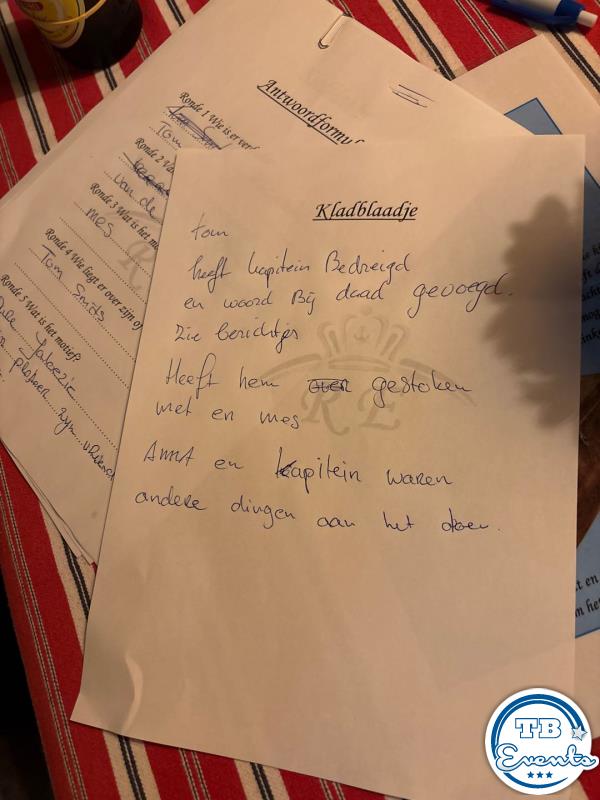 Antwoordformul
Ronde 1 Wie is er verd
Tom
Ronde 2 Va
van de
Ronde 3 Wat is het mo
mes
Ronde 4 Wie liegt er over zijn of
Tom Smids
Ronde 5 Wat is het motief?
Jaloezie
Kladblaadje
tom
heeft kapitein Bedreigd
en woord Bij daad gevoegd.
zie berichtjes
Heeft hem gestoken
met en mes
RE
Anna en kapitein waren
andere dingen aan het doen.
TB
Events